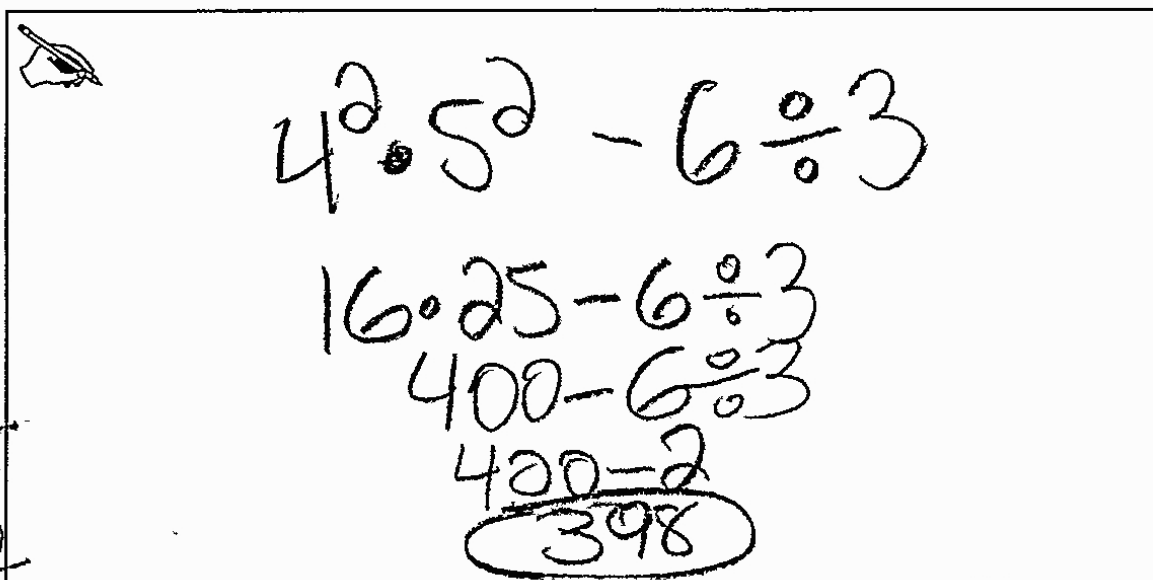 4² • 5² - 6 ÷ 3
16 • 25 - 6 ÷ 3
400 - 6 ÷ 3
400 - 2
398